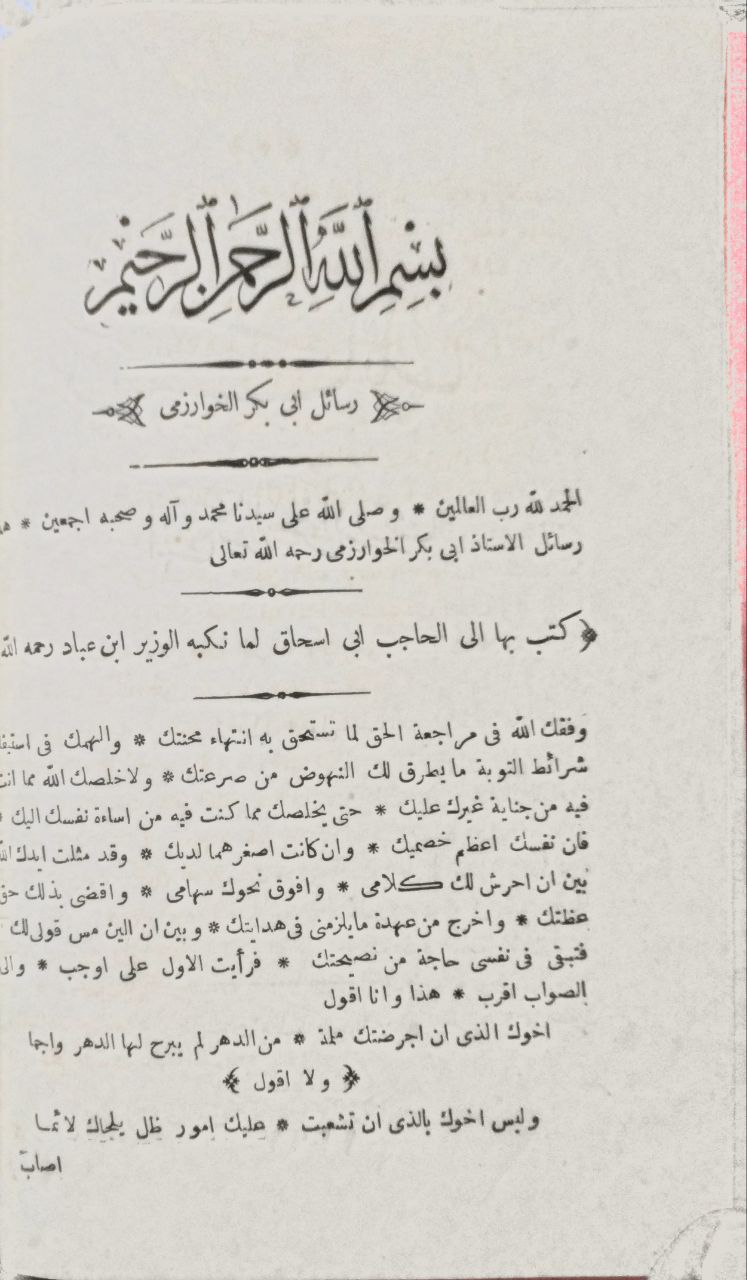 بِسْمِ ٱللَّهِ ٱلرَّحْمٰنِ ٱلرَّحِيْمِ
رسائل ابى بكر الخوارزمى
الحمد لله رب العالمين * و صلى الله على سيدنا محمد و آله و صحبه اجمعين *
رسائل الاستاذ ابى بكر الخوارزمى رحمه الله تعالى
﴿ كتب بها الى الحاجب ابى اسحاق لما نكبه الوزير ابن عباد رحمه الله
وفقك الله فى مراجعة الحق لما تستحق به انتهاء محنتك * والهمك فى
شرائط التوبة ما يطرق لك النهوض من صرعتك * ولا خلصك الله مما
فيه من جناية غيرك عليك * حتى يخلصك مما كنت فيه من اساءة نفسك اليك *
فان نفسك اعظم خصميك * وان كانت اصغرهما لديك * وقد مثلت ايدك
بين ان احرش لك كلامى * وافوق نحوك سهامى * واقضى بذلك
عظتك * واخرج من عهدة ما يلزمنى فى هدايتك * و بين ان الين مس قولى لك
فتبقى فى نفسى حاجة من نصيحتك * فرأيت الاول على اوجب *
الصواب اقرب * هذا وانا اقول
اخوك الذى ان اجرضتك ملمة * من الدهر لم يبرح لها الدهر واجما
﴿ ولا اقول ﴾
وليس اخوك بالذى ان تشعبت * عليك امور ظل يلحاك لائما
اصاب